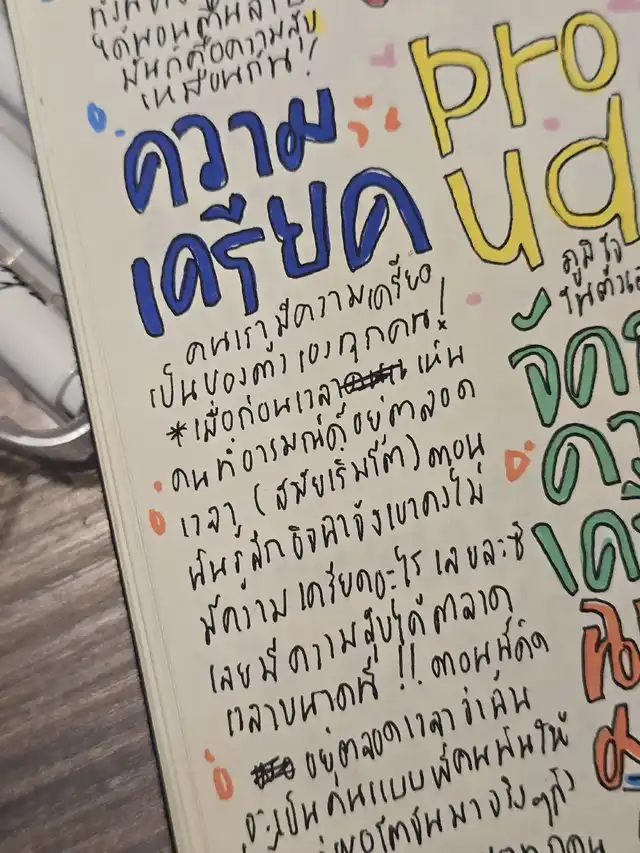 ได้นอนตื่นสาย
มันก็คือความสุข
เหมือนกัน!
ความ
เครียด
คนเรามีความเครียด
เป็นของตัวเองทุกคน!
*เมื่อก่อนเวลา เห็น
คนที่อารมณ์ดีอยู่ตลอด
เวลา (สมัยเริ่มโต) ตอน
นั้นรู้สึกอิจฉาจังเขาคงไม่
มีความเครียดอะไรเลยละซิ
เลยมีความสุขได้ตลอด
เวลาขนาดนี้ !! ตอนนี้คิด
อยู่ตลอดเวลาว่าฉัน
จะเป็นคนแบบพี่คนนั้นให้
พอโตขึ้นมาจริงๆแล้ว
ทุกคน
pro
ud
ภูมิใจ
ในตัวเอ
จัด
ควา
เครี